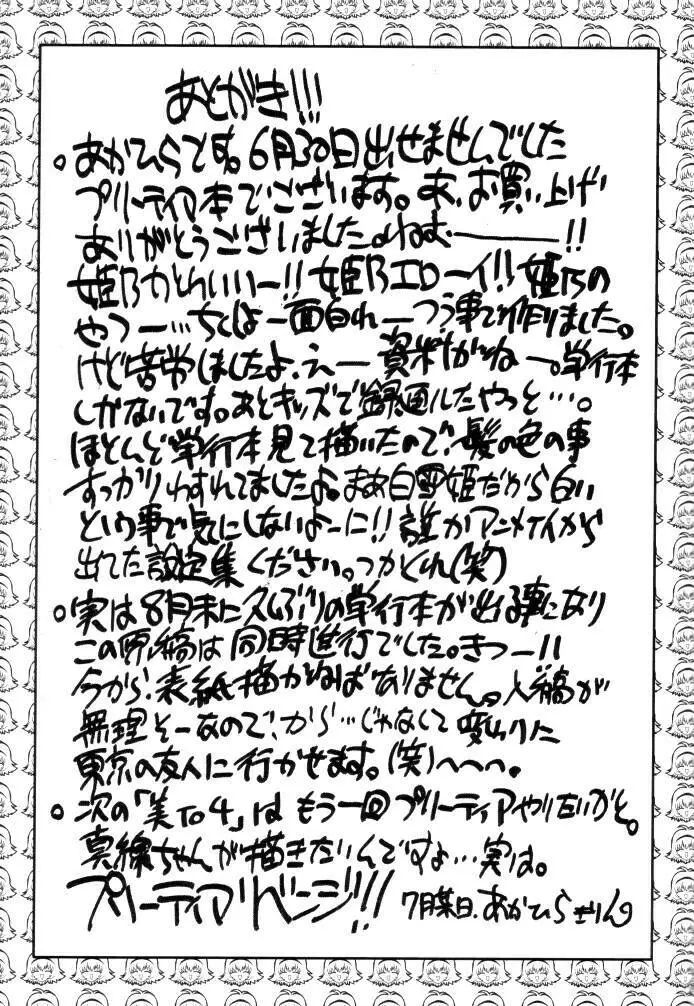 あとがき!!!
。あかひらです。6月30日出せませんでした
プリーティア本でございます。あ、お買い上げ
ありがとうございました。ねむ———!!
姫乃かわいいー!! 姫乃エローイ!! 姫乃の
やつー…ちくしょー面白れーつう事で作りました。
けど苦労しましたよ、えー資料がねー。単行本
しかないです。あとキッズで録画したやつと…。
ほとんど単行本見て描いたので、髪の色の事
すっかりわすれてましたよ。まあ白雪姫だから白い
という事で気にしないよーに!! 誰かアニメイから
出てた設定集ください。つかくれ(笑)
。実は8月末に久しぶりの単行本が出る事になり
この原稿は同時進行でした。きつー!!
今から、表紙描かねばありません。入稿が
無理そーなので、から…じゃなくて変わりに
東京の友人に行かせます。(笑)へへへ。
。次の「美To4」はもう一回プリーティアやりたいかと。
真綿ちゃんが描きたいんですよ…実は。
プリーティアリベンジ!! 7月某日.あかひらきりん